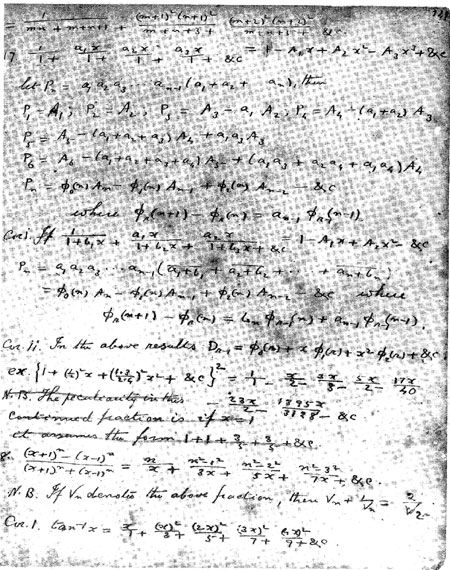 = 1/(mn+m+n+1 + (m+1)²(n+1)²/(m+n+3 + (m+2)²(n+2)²/(m+n+5 + &c
17. 1/1 + a₁x/1 + a₂x/1 + a₃x/1 + &c = 1 - A₁x + A₂x² - A₃x³ + &c
let Pₙ = a₁a₂a₃...aₙ₋₁(a₁+a₂+ aₙ), then
P₁ = A₁; P₂ = A₂; P₃ = A₃ - a₁A₂; P₄ = A₄ - (a₁+a₂)A₃
P₅ = A₅ - (a₁+a₂+a₃)A₄ + a₁a₃A₃
P₆ = A₆ - (a₁+a₂+a₃+a₄)A₅ + (a₁a₃ + a₂a₄ + a₁a₄)A₄
Pₙ = φ₀(n)Aₙ - φ₁(n)Aₙ₋₁ + φ₂(n)Aₙ₋₂ - &c
where φᵣ(n+1) - φᵣ(n) = aₙ₋₁ φᵣ₋₁(n-1).
Cor i. If 1/1+b₁x + a₁x/1+b₂x + a₂x/1+b₃x + &c = 1 - A₁x + A₂x² - &c
Pₙ = a₁a₂a₃...aₙ₋₁(a₁+b₁ + a₂+b₂ + ... + aₙ+bₙ)
= φ₀(n)Aₙ - φ₁(n)Aₙ₋₁ + φ₂(n)Aₙ₋₂ - &c where
φᵣ(n+1) - φᵣ(n) = bₙ φᵣ₋₁(n) + aₙ₋₁ φᵣ₋₂(n-1).
Cor. ii. In the above results Dₙ₋₁ = φ₀(n) + x φ₁(n) + x² φ₂(n) + &c
ex. {1 + (½)²x + (1·3/2·4)²x² + &c}² = 1/1 - x/2 - 3x/8 -
N.B. The peculiarity in this
continued fraction is if x=1
it assumes the form 1+1+ + &c
((x+1)ⁿ - (x-1)ⁿ)/((x+1)ⁿ + (x-1)ⁿ) = n/x + n²-1²/3x + n²-2²/5x + n²-3²/7x + &c.
N.B. If Vₙ denotes the above fraction, then Vₙ + 1/Vₙ = 2/V₂ₙ.
Cor. 1. tan⁻¹x = x/1 + (x)²/3 + (2x)²/5 + (3x)²/7 + (4x)²/9 + &c